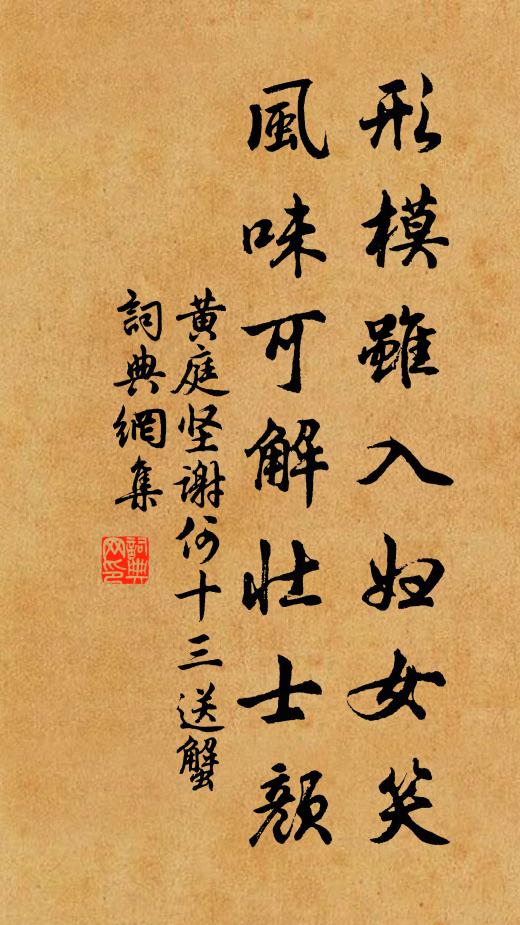 形模雖入妇女笑
風味可解壮士顏
黄庭坚謝何十三送蟹
詞典網集
詞典
网印